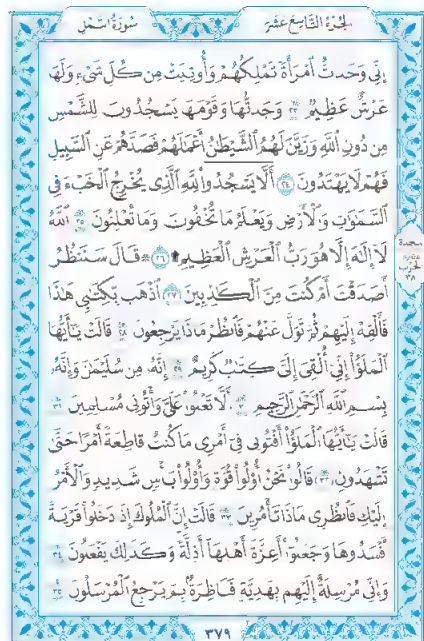 الجزء التاسع عشر
سورة النمل
إِنِّى وَجَدتُّ ٱمْرَأَةً تَمْلِكُهُمْ وَأُوتِيَتْ مِن كُلِّ شَىْءٍ وَلَهَا
عَرْشٌ عَظِيمٌ ٢٣ وَجَدتُّهَا وَقَوْمَهَا يَسْجُدُونَ لِلشَّمْسِ
مِن دُونِ ٱللَّهِ وَزَيَّنَ لَهُمُ ٱلشَّيْطَٰنُ أَعْمَٰلَهُمْ فَصَدَّهُمْ عَنِ ٱلسَّبِيلِ
فَهُمْ لَا يَهْتَدُونَ ٢٤ أَلَّا يَسْجُدُوا۟ لِلَّهِ ٱلَّذِى يُخْرِجُ ٱلْخَبْءَ فِى
ٱلسَّمَٰوَٰتِ وَٱلْأَرْضِ وَيَعْلَمُ مَا تُخْفُونَ وَمَا تُعْلِنُونَ ٢٥ ٱللَّهُ
لَآ إِلَٰهَ إِلَّا هُوَ رَبُّ ٱلْعَرْشِ ٱلْعَظِيمِ ۩ ٢٦ ۞ قَالَ سَنَنظُرُ
أَصَدَقْتَ أَمْ كُنتَ مِنَ ٱلْكَٰذِبِينَ ٢٧ ٱذْهَب بِّكِتَٰبِى هَٰذَا
فَأَلْقِهْ إِلَيْهِمْ ثُمَّ تَوَلَّ عَنْهُمْ فَٱنظُرْ مَاذَا يَرْجِعُونَ ٢٨ قَالَتْ يَٰٓأَيُّهَا
ٱلْمَلَؤُا۟ إِنِّىٓ أُلْقِىَ إِلَىَّ كِتَٰبٌ كَرِيمٌ ٢٩ إِنَّهُۥ مِن سُلَيْمَٰنَ وَإِنَّهُۥ
بِسْمِ ٱللَّهِ ٱلرَّحْمَٰنِ ٱلرَّحِيمِ ٣٠ أَلَّا تَعْلُوا۟ عَلَىَّ وَأْتُونِى مُسْلِمِينَ ٣١
قَالَتْ يَٰٓأَيُّهَا ٱلْمَلَؤُا۟ أَفْتُونِى فِىٓ أَمْرِى مَا كُنتُ قَاطِعَةً أَمْرًا حَتَّىٰ
تَشْهَدُونِ ٣٢ قَالُوا۟ نَحْنُ أُو۟لُوا۟ قُوَّةٍ وَأُو۟لُوا۟ بَأْسٍ شَدِيدٍ وَٱلْأَمْرُ
إِلَيْكِ فَٱنظُرِى مَاذَا تَأْمُرِينَ ٣٣ قَالَتْ إِنَّ ٱلْمُلُوكَ إِذَا دَخَلُوا۟ قَرْيَةً
أَفْسَدُوهَا وَجَعَلُوٓا۟ أَعِزَّةَ أَهْلِهَآ أَذِلَّةً وَكَذَٰلِكَ يَفْعَلُونَ ٣٤
وَإِنِّى مُرْسِلَةٌ إِلَيْهِم بِهَدِيَّةٍ فَنَاظِرَةٌۢ بِمَ يَرْجِعُ ٱلْمُرْسَلُونَ ٣٥
سجدة
الحزب
٣٨
٣٧٩